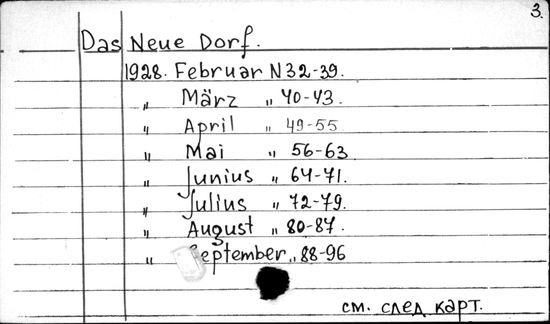 3.
Das Neue Dorf.
1928. Februar N32-39.
" März " 40-43.
" April " 49-55
" Mai " 56-63
" Junius " 64-71.
" Julius " 72-79.
" August " 80-87.
" September " 88-96
см. след. карт.